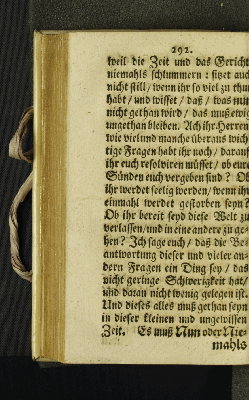 292.
weil die Zeit und das Gericht
niemahls schlummern: sitzet auch
nicht still / wenn ihr so viel zu thun
habt / und wisset / daß / was nun
nicht gethan wird / das muß ewig
ungethan bleiben. Ach ihr Herren
wie viel und manche überaus wich-
tige Fragen habt ihr noch / darauf
ihr euch resolviren müsset / ob eure
Sünden euch vergeben sind? Ob
ihr werdet seelig werden / wenn ihr
einmahl werdet gestorben seyn?
Ob ihr bereit seyd diese Welt zu
verlassen / und in eine andere zu ge-
hen? Ich sage euch / daß die Be-
antwortung dieser und vieler an-
dern Fragen ein Ding sey / das
nicht geringe Schwerigkeit hat /
und daran nicht wenig gelegen ist.
Und dieses alles muß gethan seyn
in dieser kleinen und ungewissen
Zeit. Es muß Nun oder Nie-
mahls